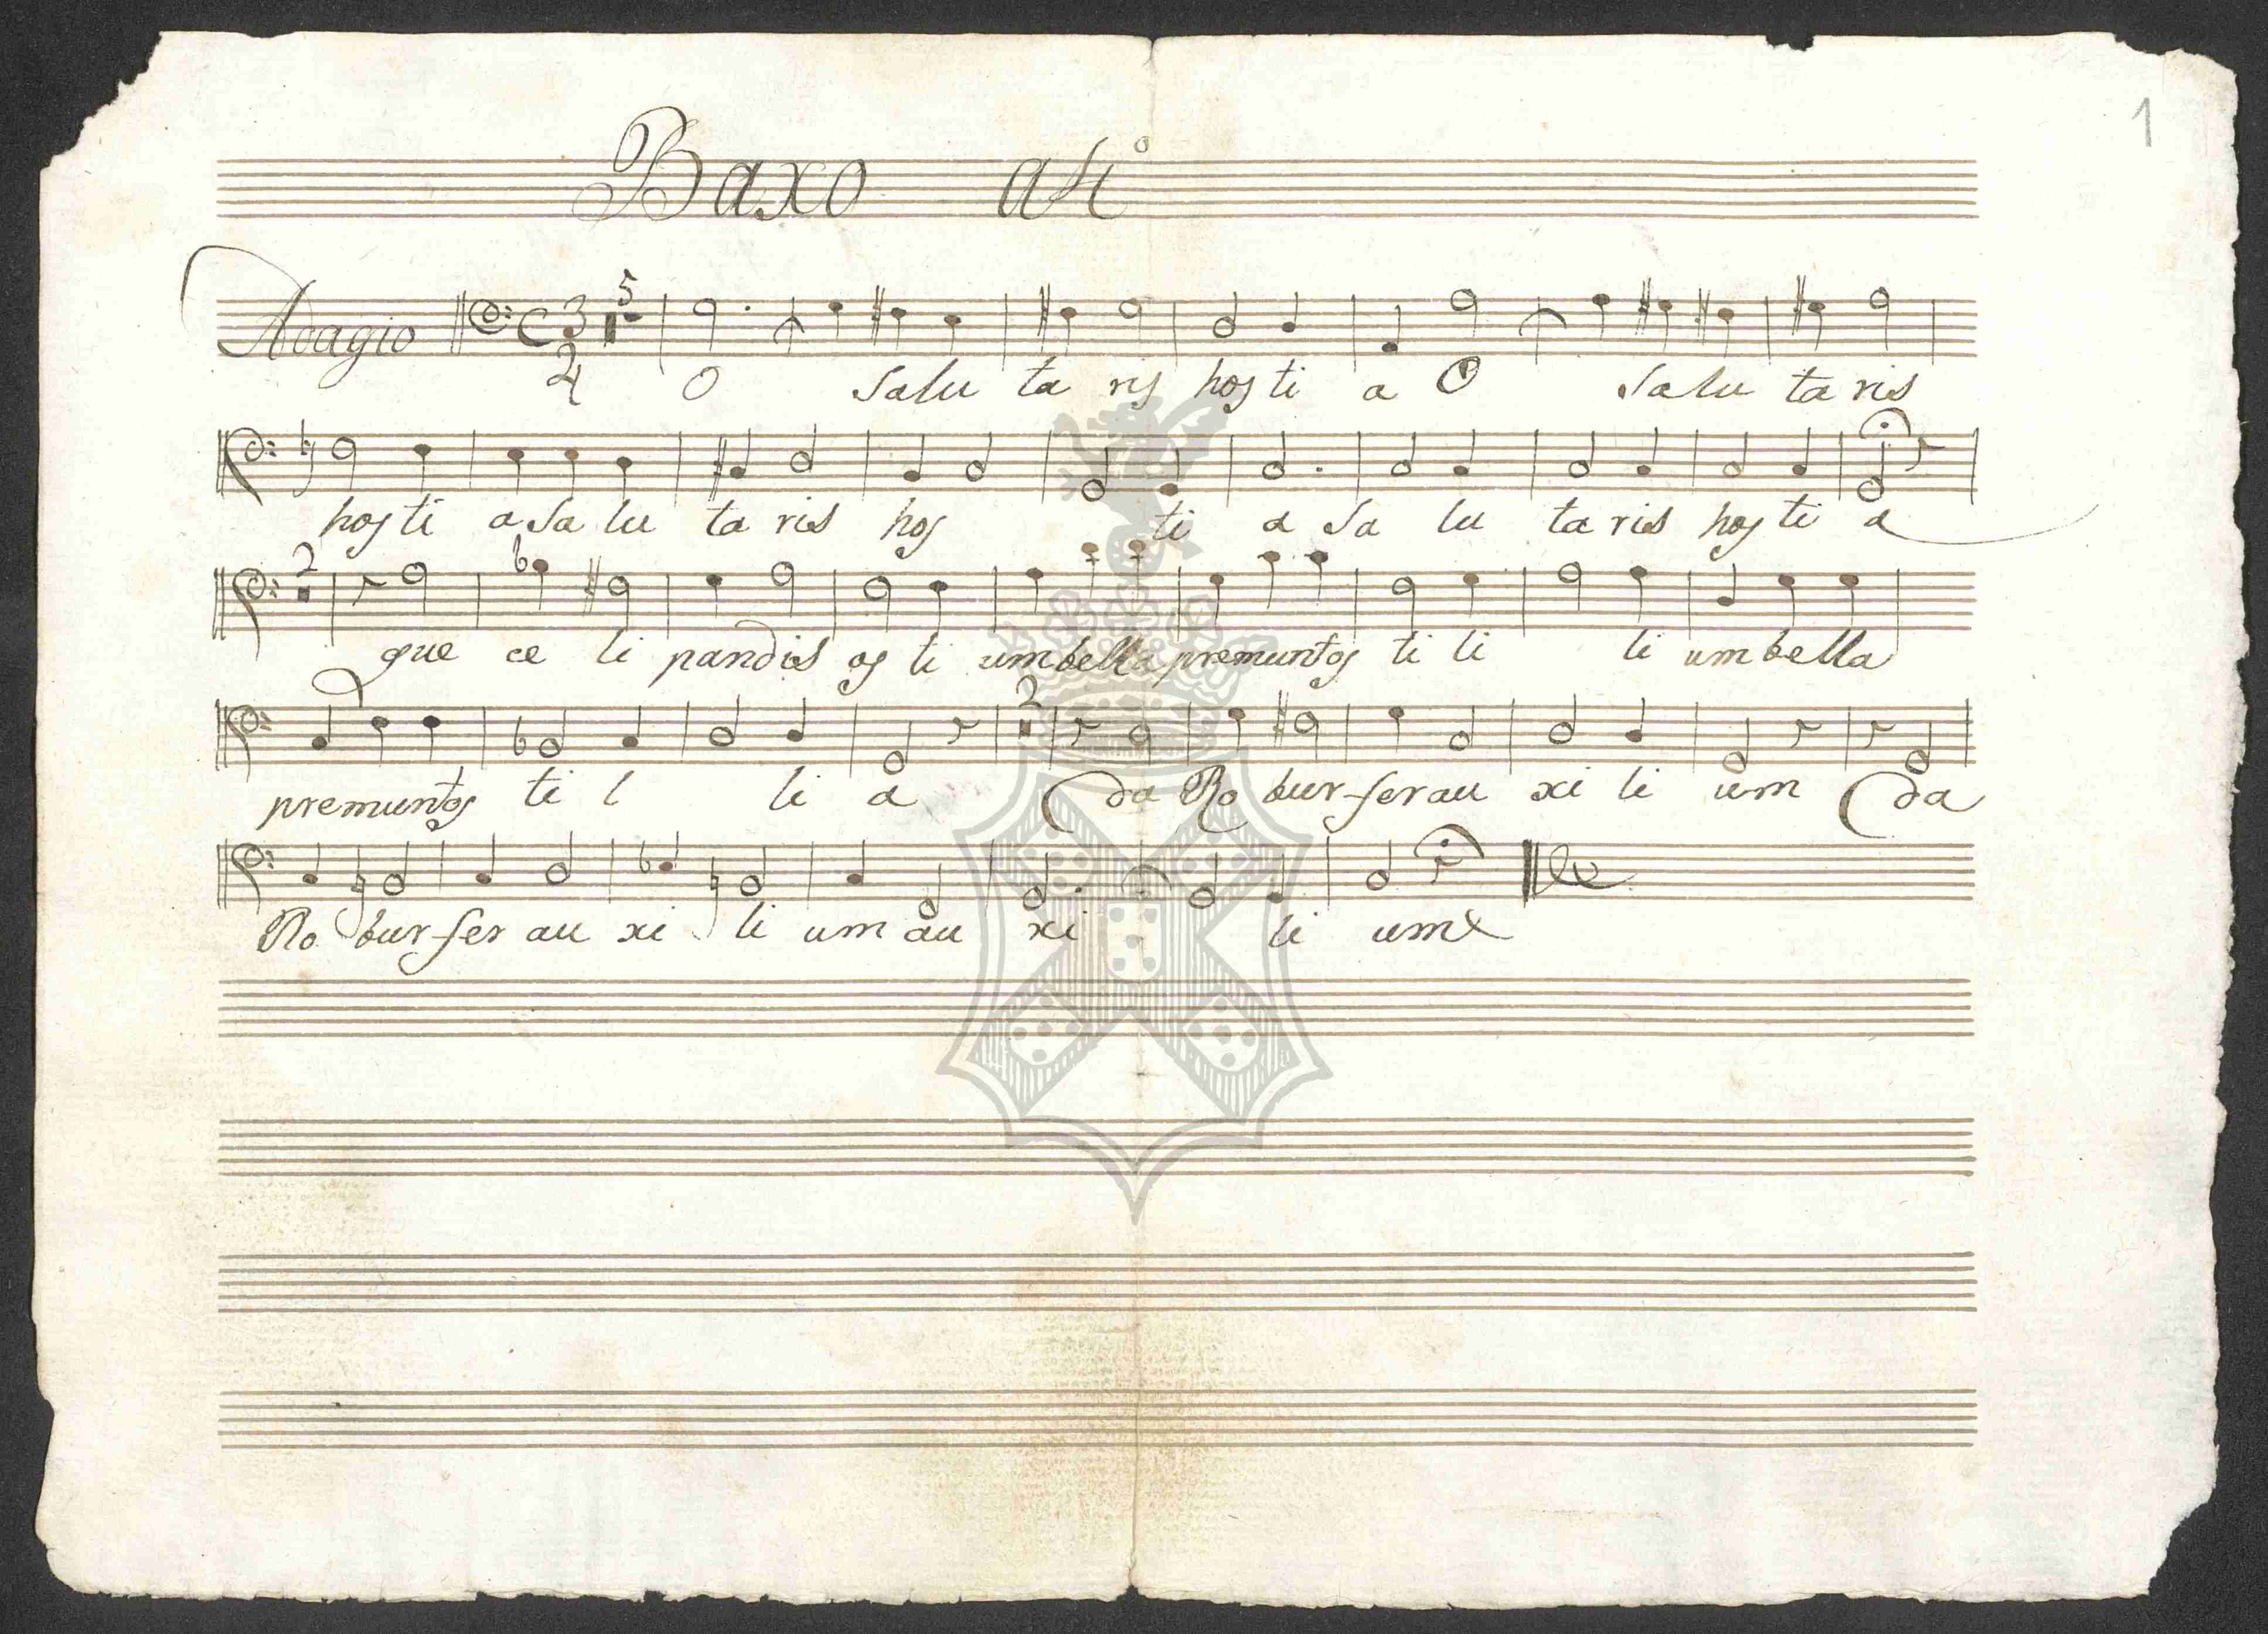 1
Baxo a 4º
Adagio C 3 4 5
O salu ta ris hos ti a O salu ta ris
hos ti a sa lu ta ris hos ti a sa lu ta ris hos ti a
2
que ce li pandis os ti um bella premuntos ti li li um bella
2
premuntos ti l li a da Ro bur fer au xi li um da
Ro bur fer au xi li um au xi li um